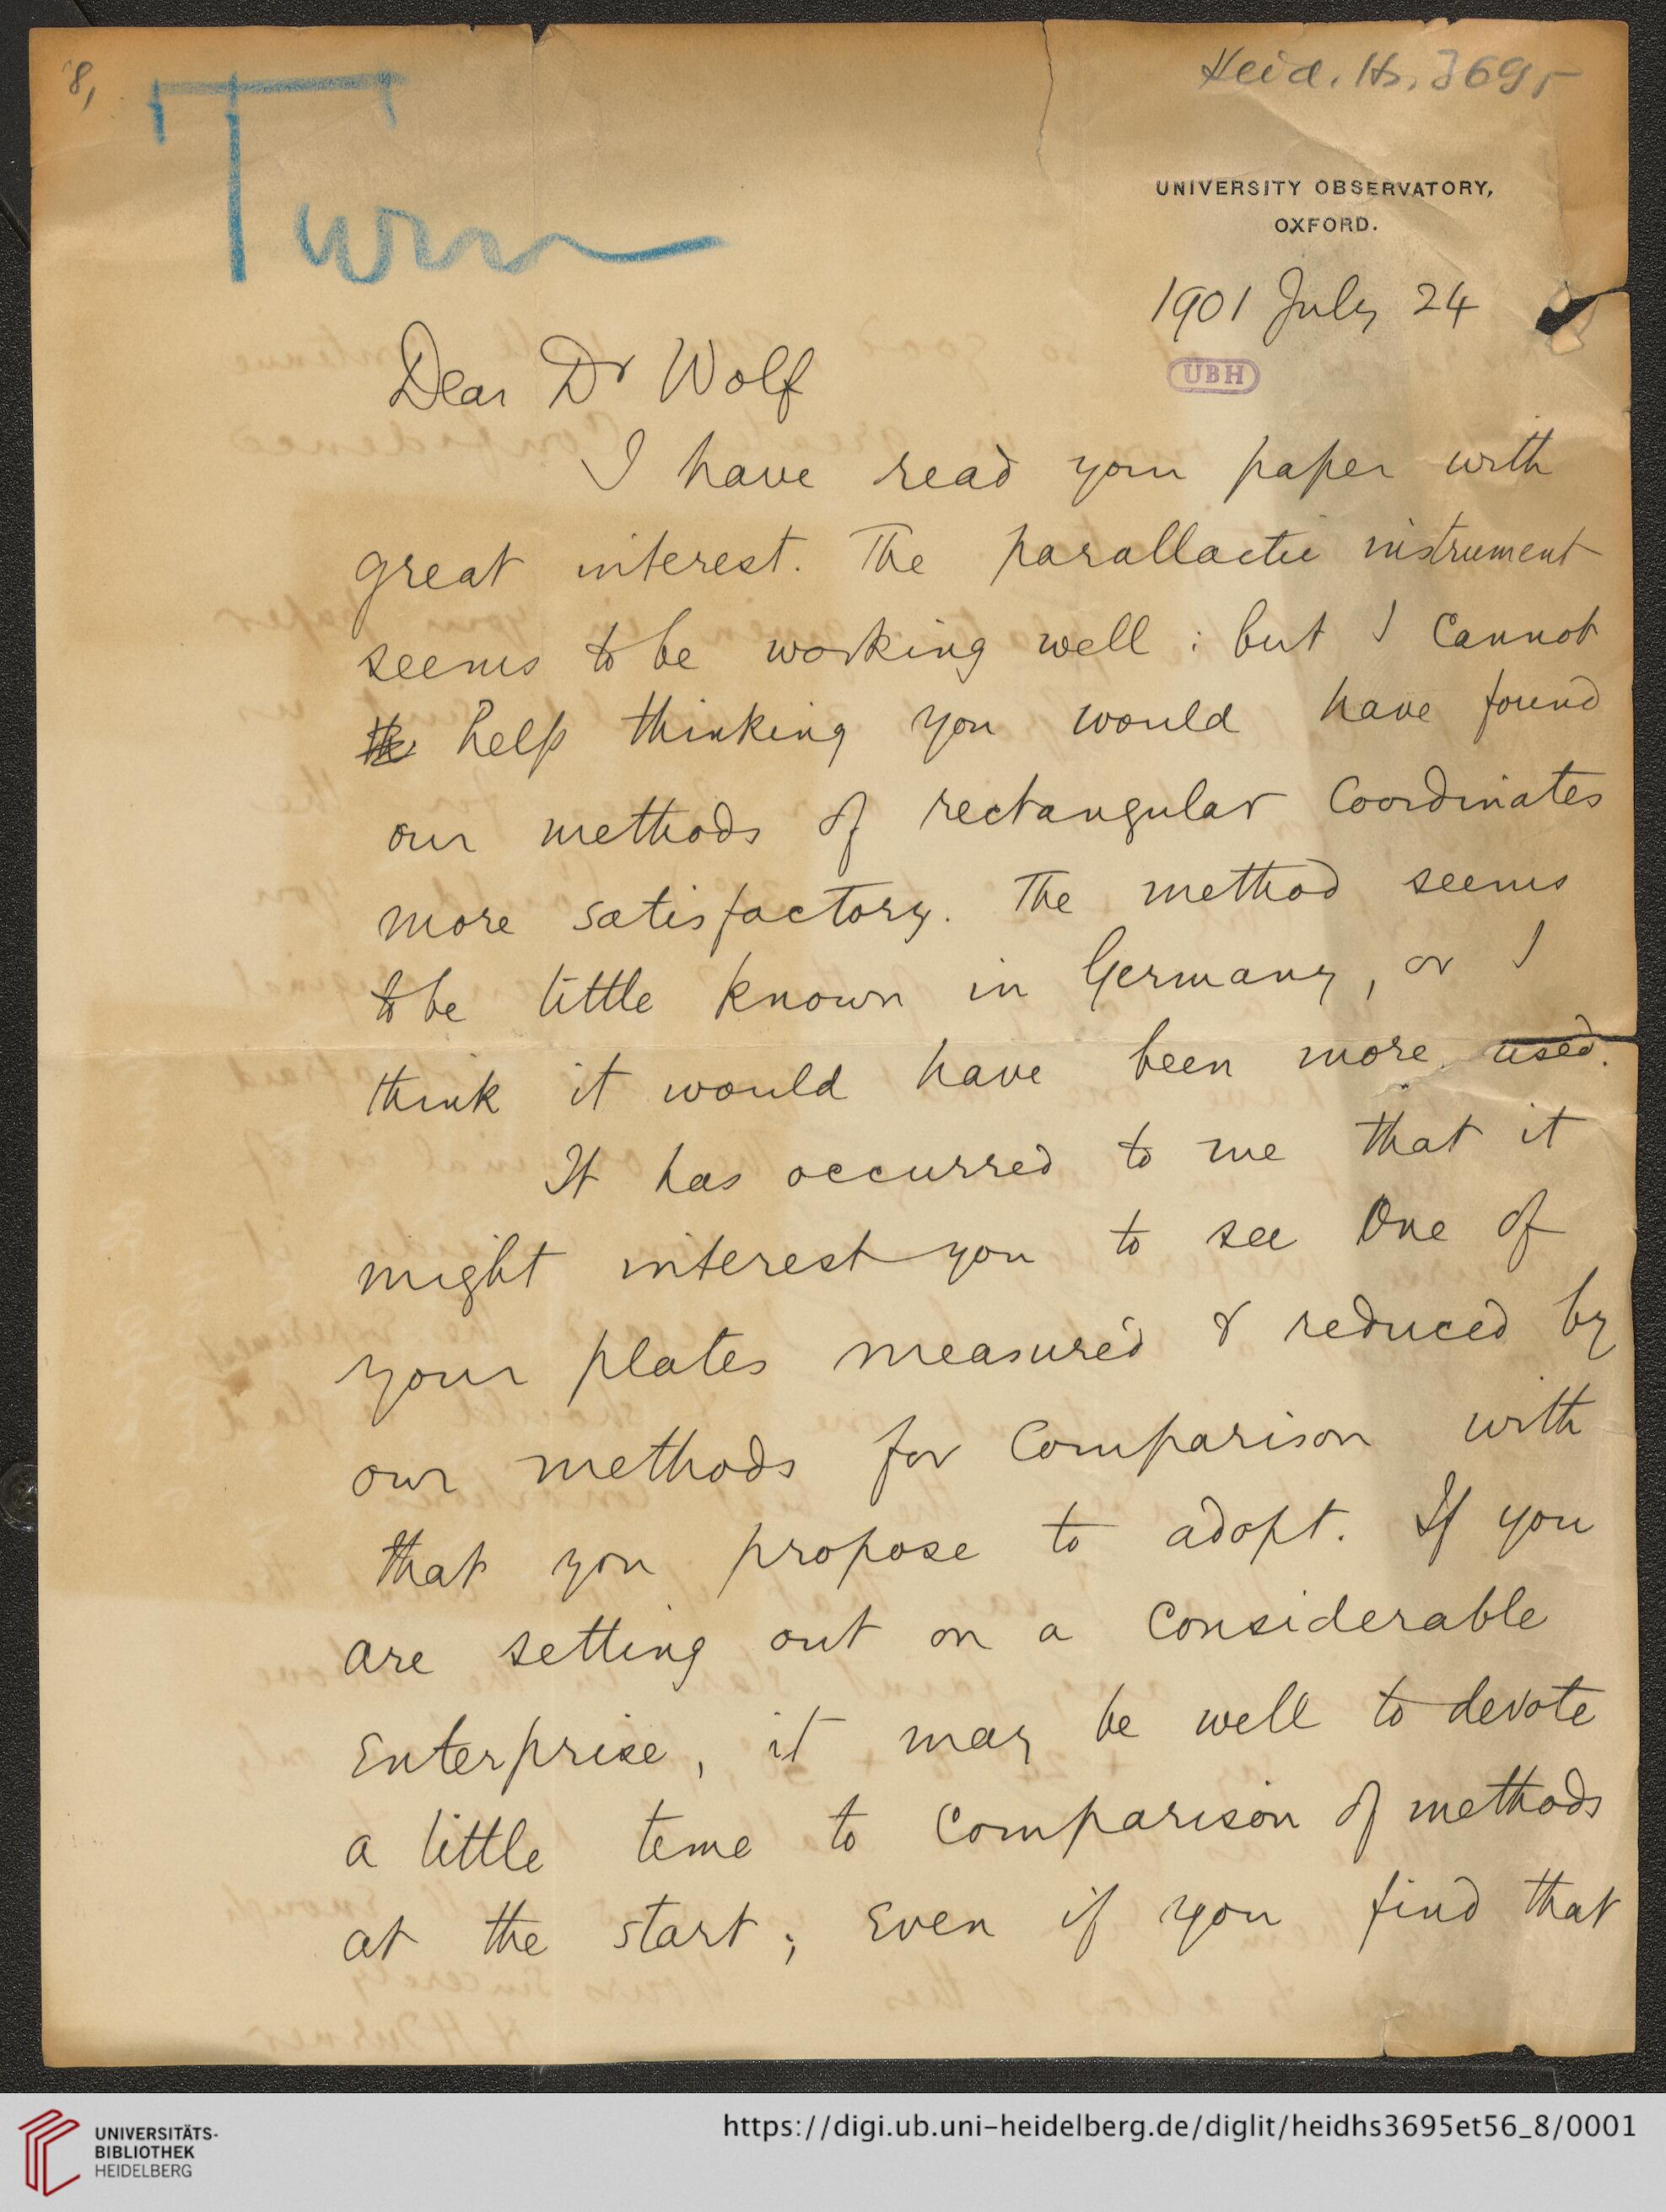 8,
Heid. Hs. 3695
Turn
UNIVERSITY OBSERVATORY,
OXFORD.
1901 July 24
UBH
Dear Dr Wolf
I have read your paper with
great interest. The parallactic instrument
seems to be working well : but I cannot
help thinking you would have found
our methods of rectangular coordinates
more satisfactory. The method seems
to be little known in Germany, or I
think it would have been more used.
It has occurred to me that it
might interest you to see one of
your plates measured & reduced by
our methods for comparison with
that you propose to adopt. If you
are setting out on a considerable
enterprise, it may be well to devote
a little time to comparison of methods
at the start; even if you find that
UNIVERSITÄTS-
BIBLIOTHEK
HEIDELBERG
https://digi.ub.uni-heidelberg.de/diglit/heidhs3695et56_8/0001